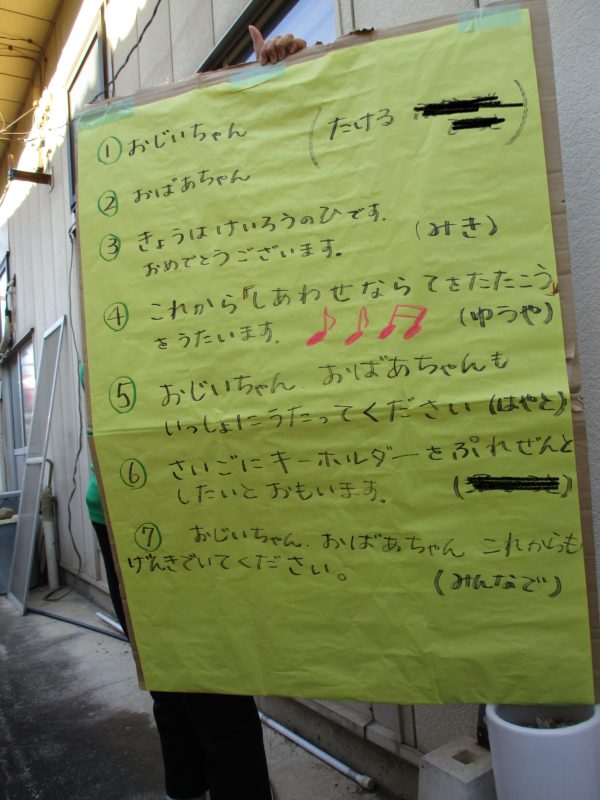 ① おじいちゃん (たける )
② おばあちゃん
③ きょうはけいろうのひです.
おめでとうございます。 (みき)
④ これから『しあわせならてをたたこう』
をうたいます. (ゆうや)
⑤ おじいちゃん.おばあちゃんも
いっしょにうたってください (はやと)
⑥ さいごにキーホルダーをぷれぜんと
したいとおもいます。 ( )
⑦ おじいちゃん.おばあちゃん これからも
げんきでいてください。
(みんなで)